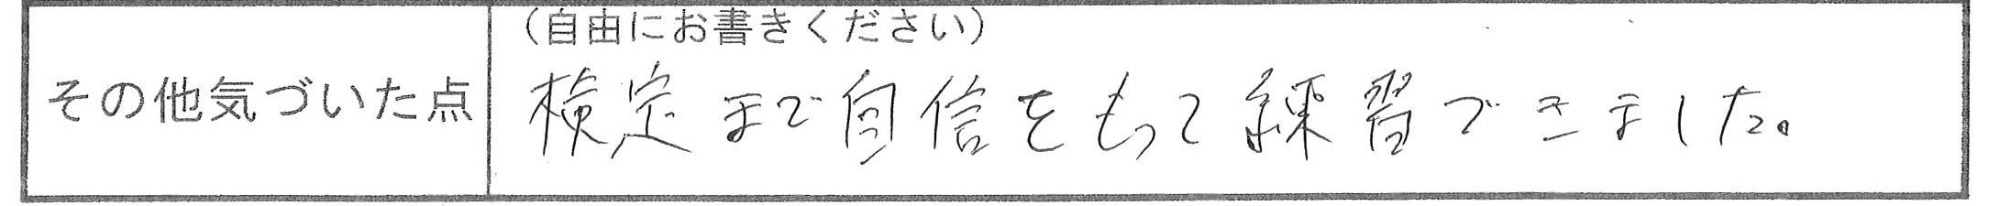 その他気づいた点
（自由にお書きください）
検定まで自信をもって練習できました。